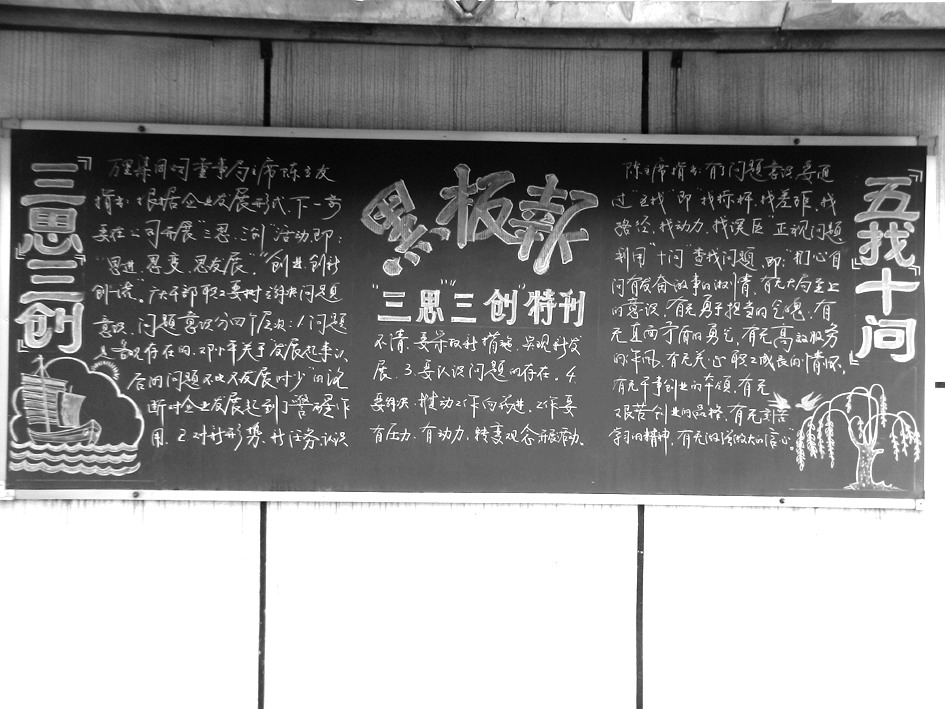 三思三创
万里集团司董事局主席陈立友
指出:根据企业发展形式,下一步
要在公司开展“三思、三创”活动,即:
“思进、思变、思发展”,“创业、创新
创优”。广大干部职工要树立解决问题
意识,问题意识分四个层次:1.问题
是客观存在的,邓小平关于“发展起来以
后的问题不比不发展时少”的论
断对企业发展起到了警醒作
用。2.对新形势、新任务认识
黑板报
“三思”“三创”特刊
不清,要采取新措施,实现新发
展。3.要认识问题的存在。4.
要解决、推动工作向前进,工作要
有压力、有动力,转变观念开展活动。
陈主席指出:有了问题意识要通
过“五找”即“找标杆、找差距、找
路径、找动力、找误区”正视问题
利用“十问”查找问题,即:“扪心自
问有无奋发干事的激情,有无大局至上
的意识,有无勇于担当的气魄,有
无直面矛盾的勇气,有无高效服务
的作风,有无关心职工成长的情怀,
有无干事创业的本领,有无
艰苦创业的品格,有无刻苦
学习的精神,有无做强做大的信心”
五找十问